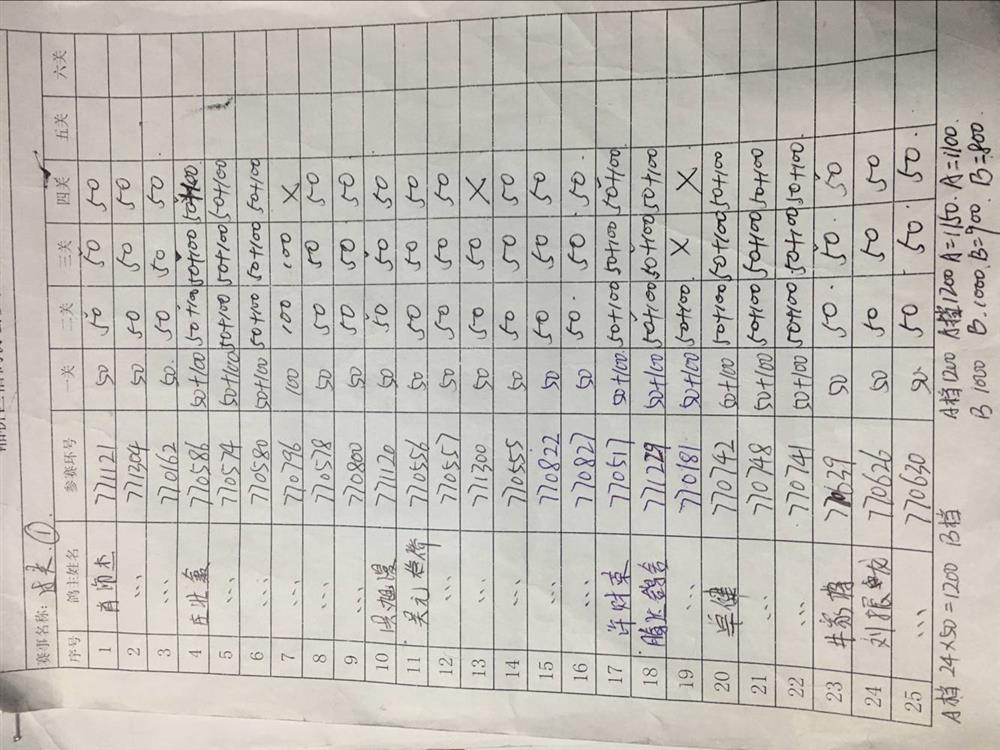 赛事名称: ①
序号 鸽主姓名 参赛环号 一关 二关 三关 四关 五关 六关
1 肖师杰 771121 50 50 50 50
2 … 771304 50 50 50 50
3 … 770162 50 50 50 50
4 庄壮鑫 770586 50+100 50+100 50+100 50+100
5 … 770574 50+100 50+100 50+100 50+100
6 … 770580 50+100 50+100 50+100 50+100
7 … 770796 100 100 100 X
8 … 770578 50 50 50 50
9 … 770800 50 50 50 50
10 洪旭漫 771120 50 50 50 50
11 吴元 770556 50 50 50 50
12 … 770557 50 50 50 50
13 … 771300 50 50 50 X
14 … 770555 50 50 50 50
15 … 770822 50 50 50 50
16 … 770827 50 50 50 50
17 许财东 770517 50+100 50+100 50+100 50+100
18 腾飞鸽舍 771229 50+100 50+100 50+100 50+100
19 … 770181 50+100 50+100 X X
20 卓健 770742 50+100 50+100 50+100 50+100
21 … 770748 50+100 50+100 50+100 50+100
22 … 770741 50+100 50+100 50+100 50+100
23 770639 50 50 50 50
24 刘振 770626 50 50 50 50
25 … 770630 50 50 50 50
A档 24×50=1200 B档 A档1200 A档1200 A=1150. A=1100.
B1000 B.1000. B=900. B=800.